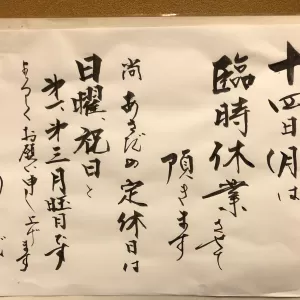 十四日月は
臨時休業させて
頂きます
尚 あさだの定休日は
日曜、祝日と
第一、第三月曜日です
よろしくお願い申し上げます